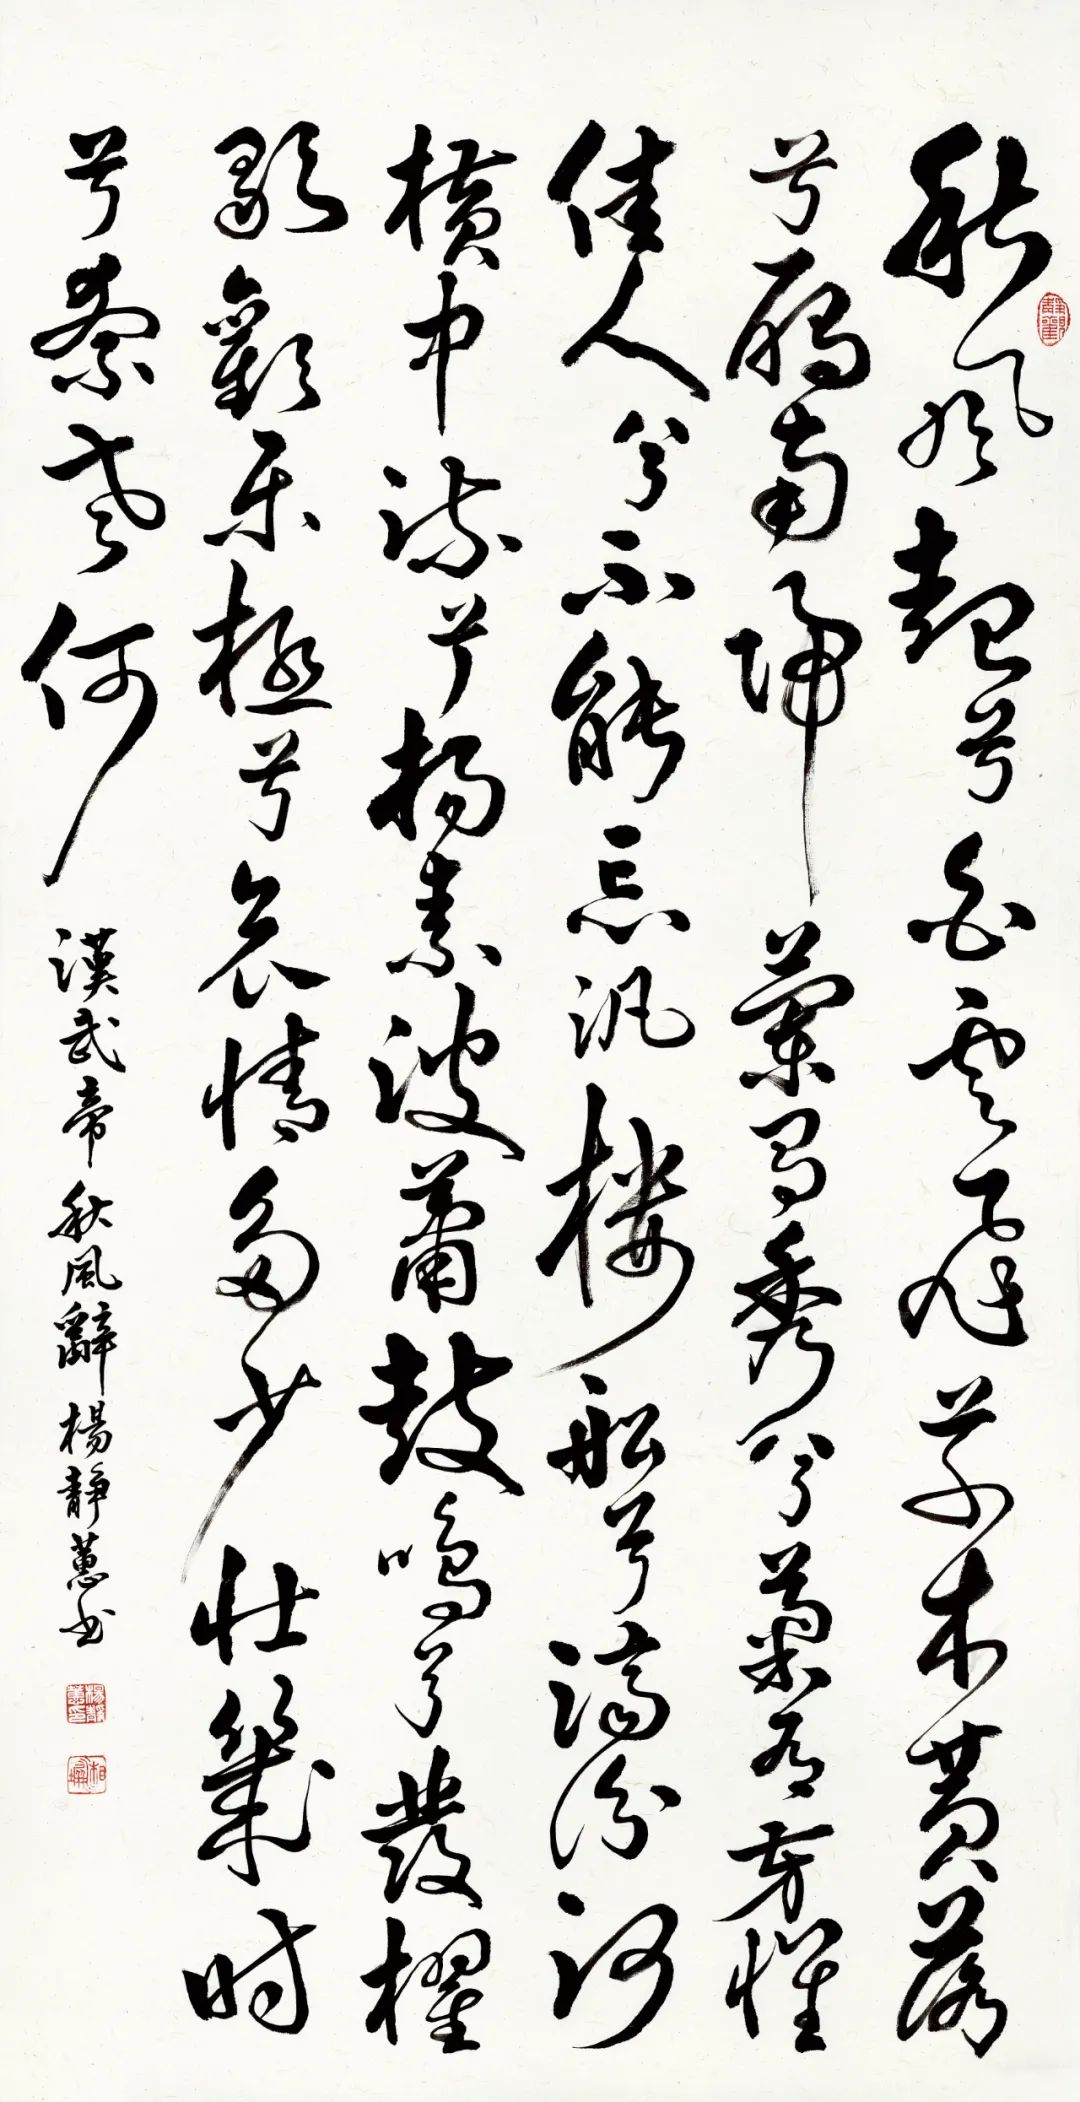 秋風起兮白雲飛草木黄落
兮雁南歸蘭有秀兮菊有芳懷
佳人兮不能忘汎樓船兮濟汾河
横中流兮揚素波簫鼓鳴兮發櫂
歌歡樂極兮哀情多少壯幾时
兮奈老何
漢武帝秋風辭楊靜蕙书